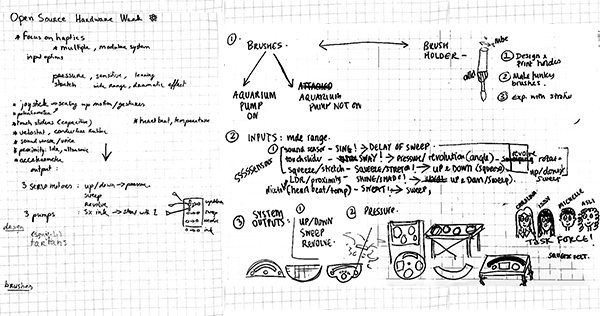 Open Source Hardware Week
* Focus on haptics
* multiple, modular system
input options
pressure, sensitive, leaning
stretch wide range, dramatic effect
* joystick → scaling up motion/gestures
* potentiometer
* touch sliders (capacitive)
* heartbeat, temperature
* velostat, conductive rubber
* sound sensor/voice
* proximity: ldr, ultrasonic
* accelerometer
output:
3 servo motors: up/down → pressure
sweep
revolve
3 pumps: 3x ink → start with 1
tartans
brushes
① BRUSHES.
BRUSH HOLDER →
tube
① Design & Print holders
② Make funky brushes.
③ Exp. with straw
AQUARIUM PUMP ON
ATTACHED
AQUARIUM PUMP NOT ON
② INPUTS: wide range.
SSSSSENSOR
① sound sensor - SING! → DELAY OF SWEEP.
touch slider - SWAY! → PRESSURE/revolution (angle) →
revolve
Squeeze/stretch - SQUEEZE/STRETCH! → UP & DOWN (squeeze)
up/down/sweep
LDR/proximity - SHINE/SHADE! → UP & DOWN/SWEEP).
(heart beat/temp) → SWEAT! → sweep,
③ SYSTEM OUTPUTS:
①
UP/DOWN
SWEEP
REVOLVE.
② PRESSURE.
MICHELLE
ASLI
TASK FORCE!